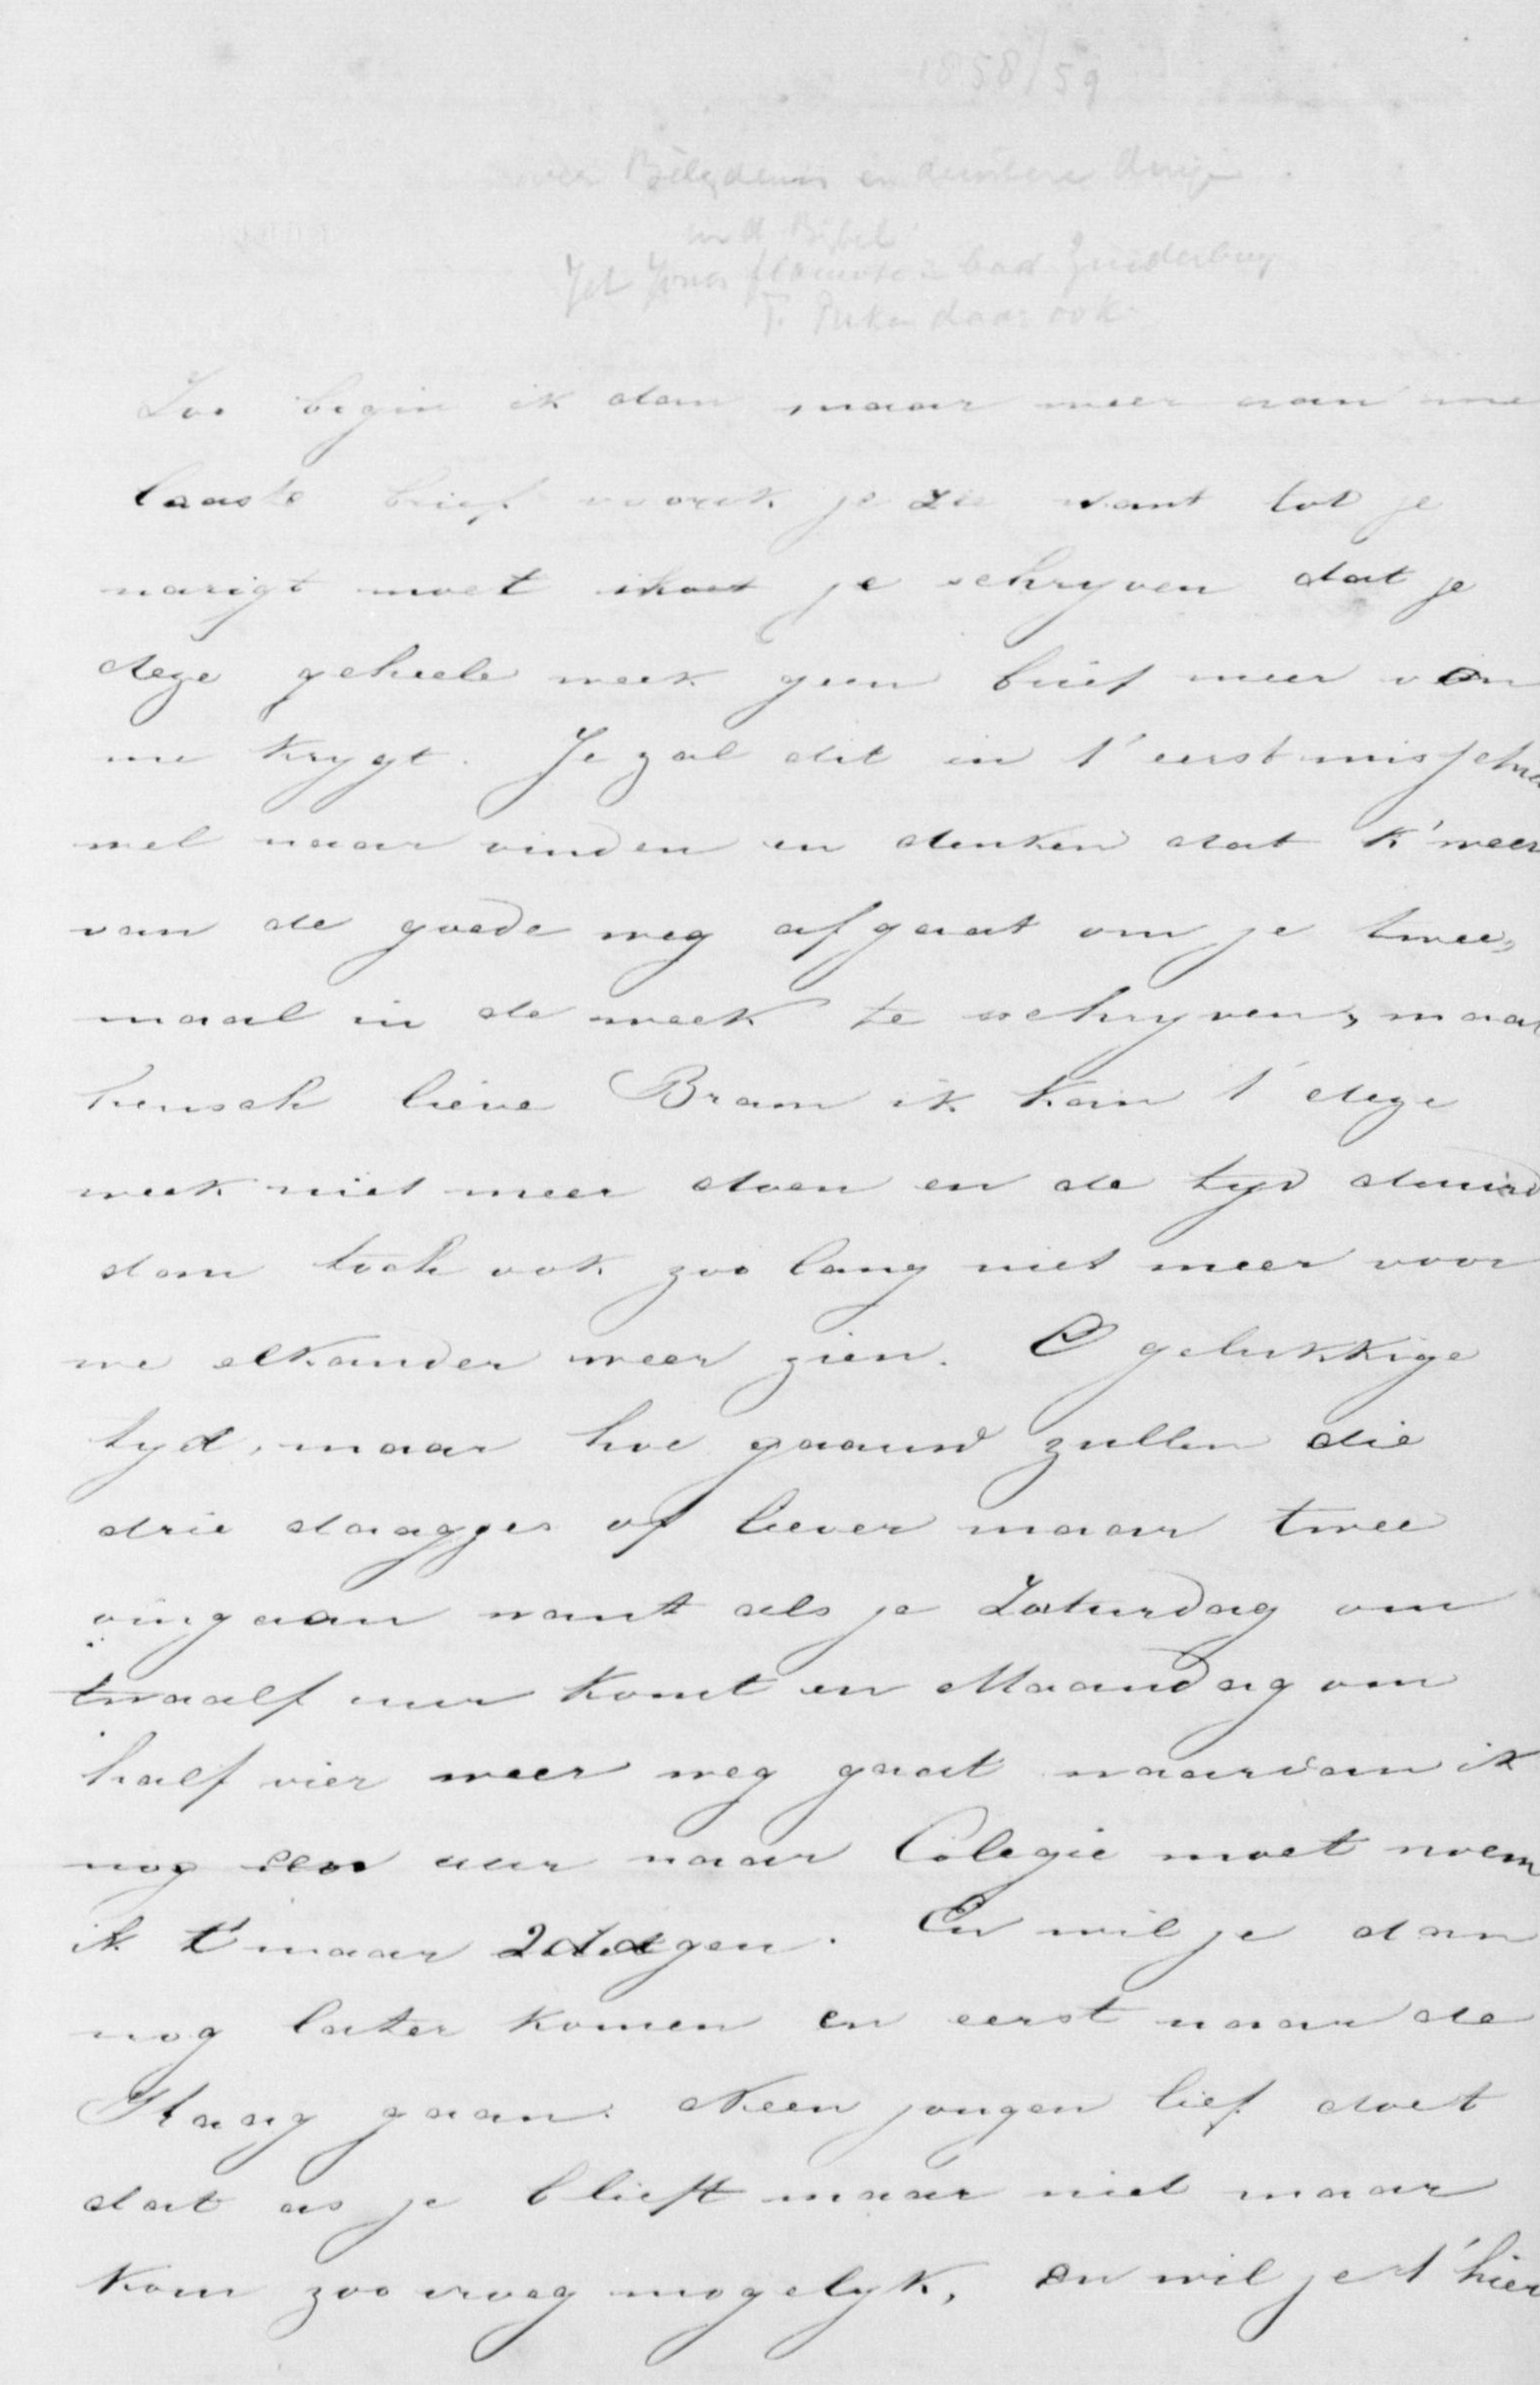 1858/59
over Belydenis en
in d Bijbel
Jet
T. daar ook
Zoo begin ik dan maar weer aan me
laaste brief voor ik je zie want tot je
narigt moet ik je schryven dat je
deze geheele week geen brief meer van
me krygt. Je zal dit in t' eerst misschien
wel naar vinden en denken dat k' weer
van de goede weg afgaat om je twee,
maal in de week te schryven, maar
heusch lieve Bram ik kan t' deze
week niet meer doen en de tyd duurd
dan toch ook zoo lang niet meer voor
we elkander weer zien. O gelukkige
tyd, maar hoe gaauw zullen die
drie daagjes of liever maar twee
omgaan want als je Zaturdag om
twaalf uur komt en Maandag om
half vier weer weg gaat waarvan ik
nog een uur naar Colegie moet noem
ik t' maar 2 dagen. En wil je dan
nog later komen en eerst naar de
Haag gaan. Neen jongen lief doet
dat as je blieft maar niet maar
kom zoo vroeg mogelyk, en wil je t' hier